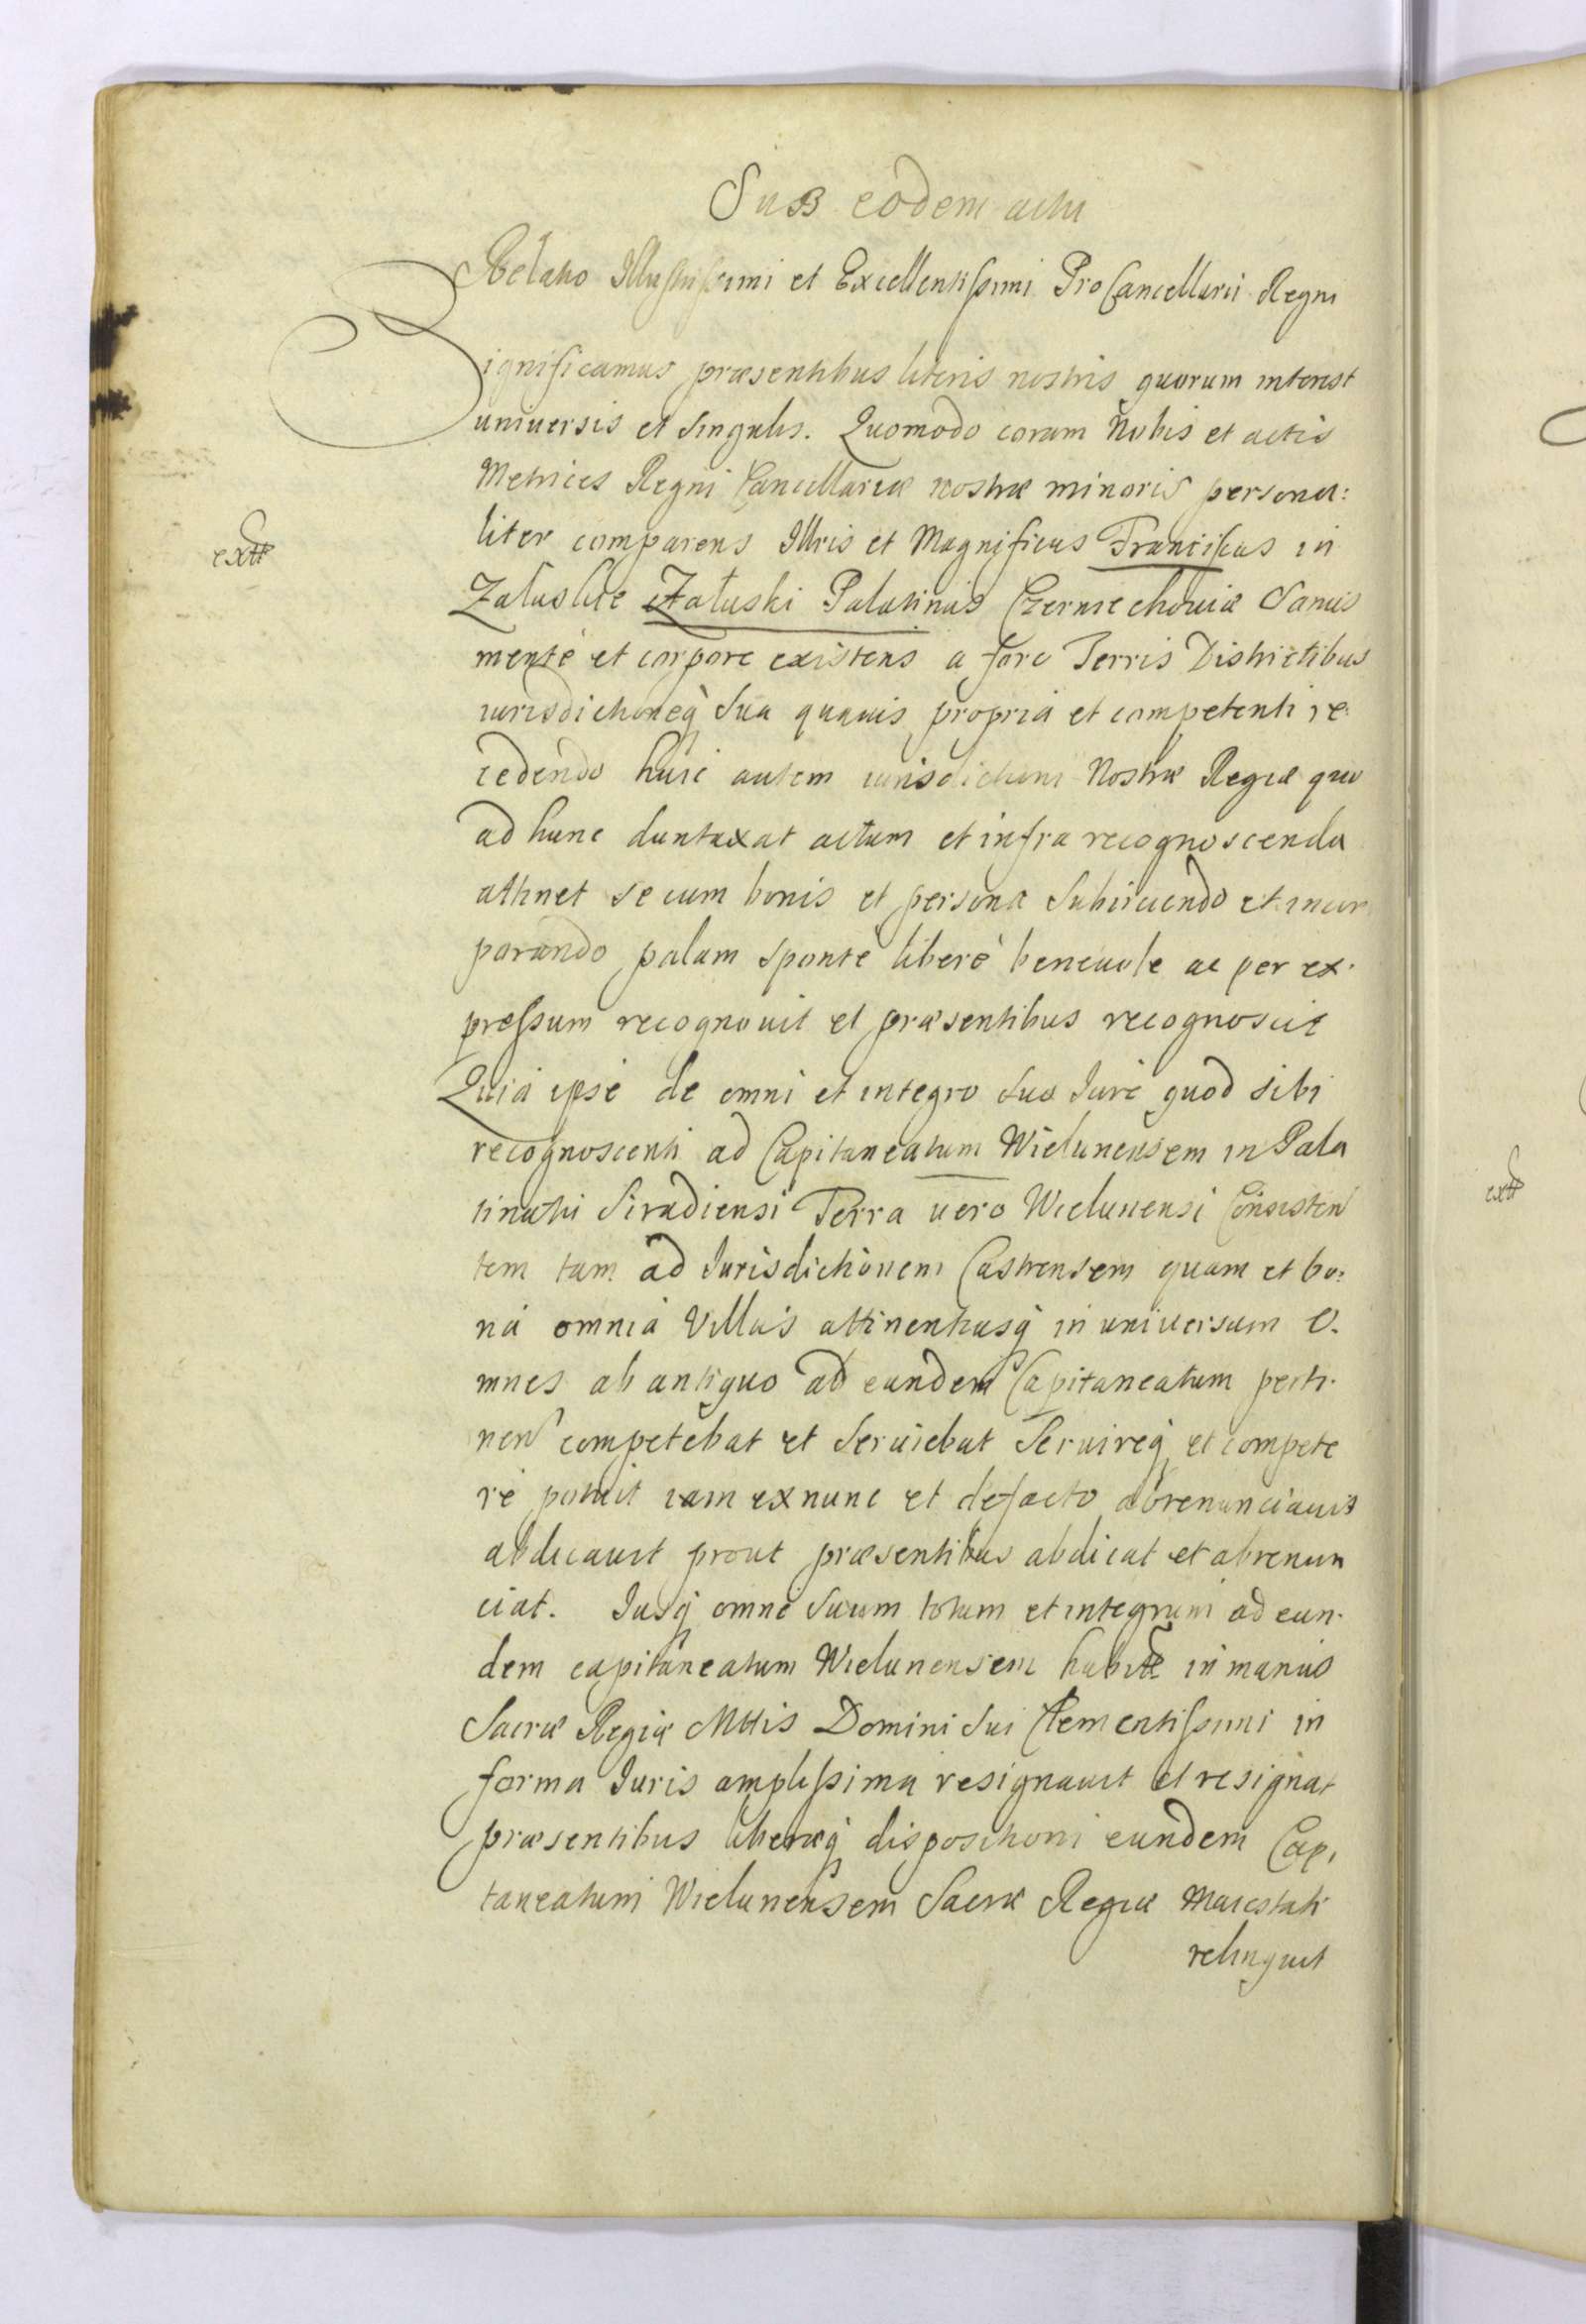 Sub eodem actu
Relatio Illustrissimi et Excellentissimi ProCancellarii Regni
Significamus præsentibus literis nostris quorum interest
universis et singulis. Quomodo coram Nobis et actis
Metrices Regni Cancellariæ nostræ minoris persona:
liter comparens Illris et Magnificus Franciscus in
extt
Załuskie Załuski Palatinus Czerniechoviæ Sanus
mente et corpore existens a foro Terris Districtibus
iurisdictioneq sua quavis propria et competenti re:
cedendo huic autem iurisdictioni Nostræ Regiæ quo
ad hunc duntaxat actum et infra recognoscenda
attinet se cum bonis et persona subiiciendo et incor
porando palam sponte liberè benevole ac per ex.
pressum recognovit et præsentibus recognoscit
Quia ipse de omni et integro suo Jure quod sibi
recognoscenti ad Capitaneatum Wielunensem in Pala
tinatu Siradiensi Terra vero Wielunensi Consisten
tem tam ad Jurisdictionem Castrensem quam et bo:
na omnia Villas attinentiasq in universum O.
mnes ab antiquo ad eundem Capitaneatum perti.
nen competebat et serviebat Servireq et compete
re potuit iam ex nunc et defacto abrenunciavit
abdicavit prout præsentibus abdicat et abrenun
ciat. Jusq omne suum totum et integrum ad eun.
dem capitaneatum Wielunensem habitt in manus
Sacræ Regiæ Mttis Domini sui Clementissimi in
forma Juris amplissima resignavit et resignat
præsentibus liberæq dispositioni eundem Capi
taneatum Wielunensem Sacræ Regiæ Maiestati
relinquit
extt